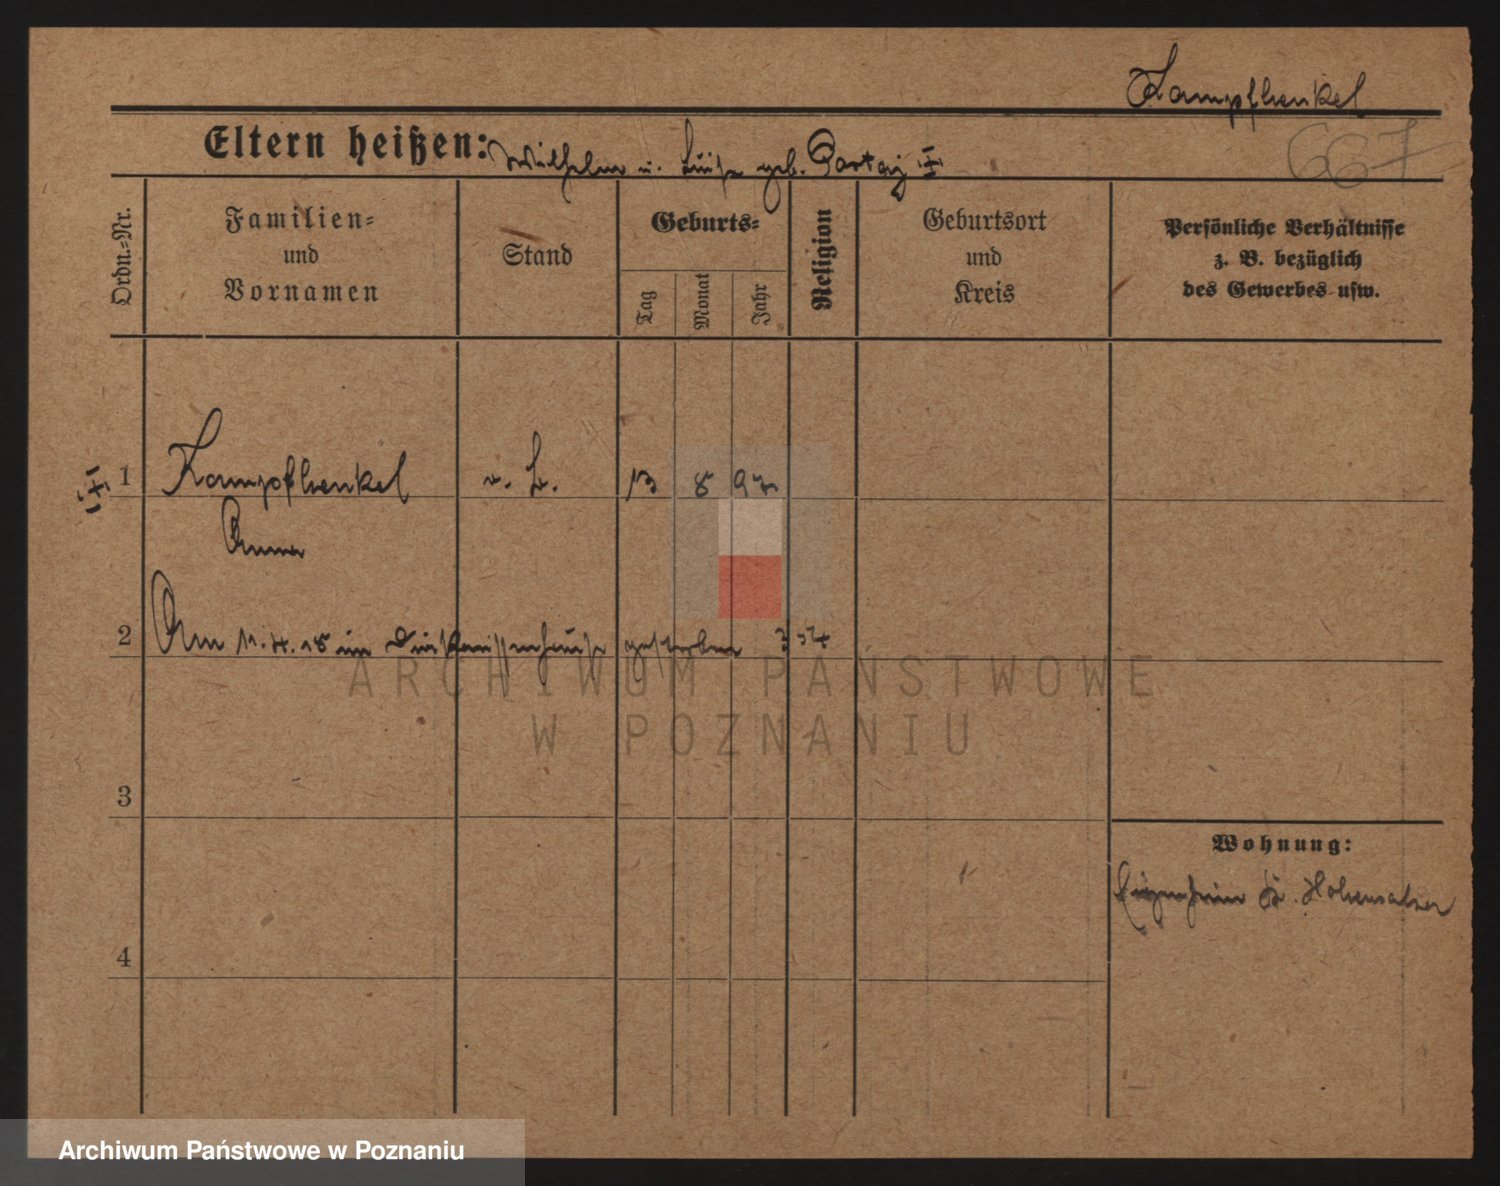 Kampfhenkel
667
Eltern heißen: Wilhelm u. Luise geb. Partaj
Ordn.-Nr.
Familien-
und
Vornamen
Stand
Geburts-
Tag
Monat
Jahr
Religion
Geburtsort
und
Kreis
Persönliche Verhältnisse
z. B. bezüglich
des Gewerbes usw.
1 Kampfhenkel 13 8 97
Anna
2 Am 11.4.18 im Diakonissenhause gestorben
ARCHIWUM PAŃSTWOWE
W POZNANIU
3
Wohnung:
Eigenheim Kr. Hohensalza
4
Archiwum Państwowe w Poznaniu